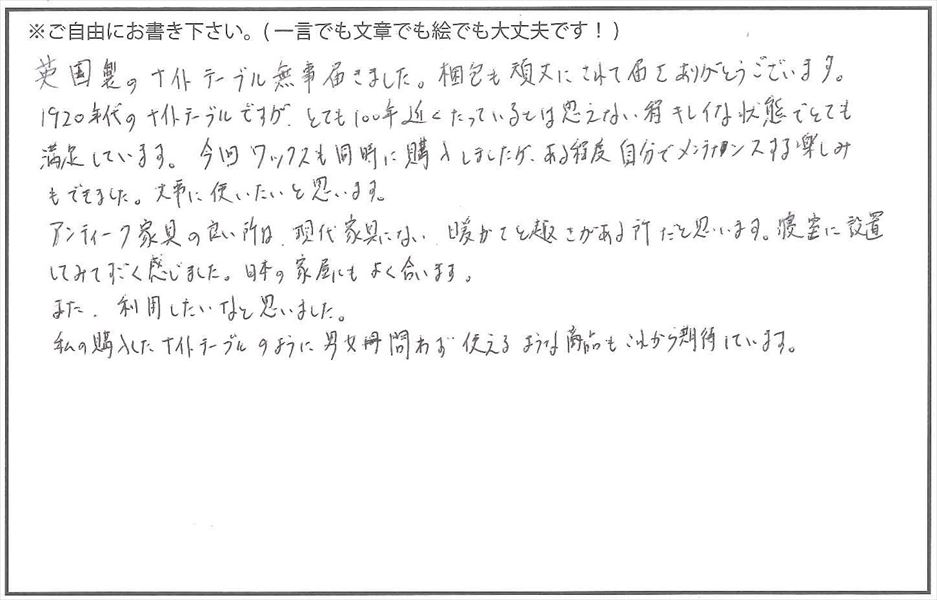 ※ご自由にお書き下さい。(一言でも文章でも絵でも大丈夫です！)
英国製のナイトテーブル無事届きました。梱包も頑丈にされて届きありがとうございます。
1920年代のナイトテーブルですが、とても100年近くたっているとは思えない程キレイな状態でとても
満足しています。今回ワックスも同時に購入しましたが、ある程度自分でメンテナンスする楽しみ
もできました。大事に使いたいと思います。
アンティーク家具の良い所は、現代家具にない、暖かさと趣きがある所だと思います。寝室に設置
してみてすごく感じました。日本の家屋にもよく合います。
また、利用したいなと思いました。
私の購入したナイトテーブルのように男女問わず使えるような商品もこれから期待しています。